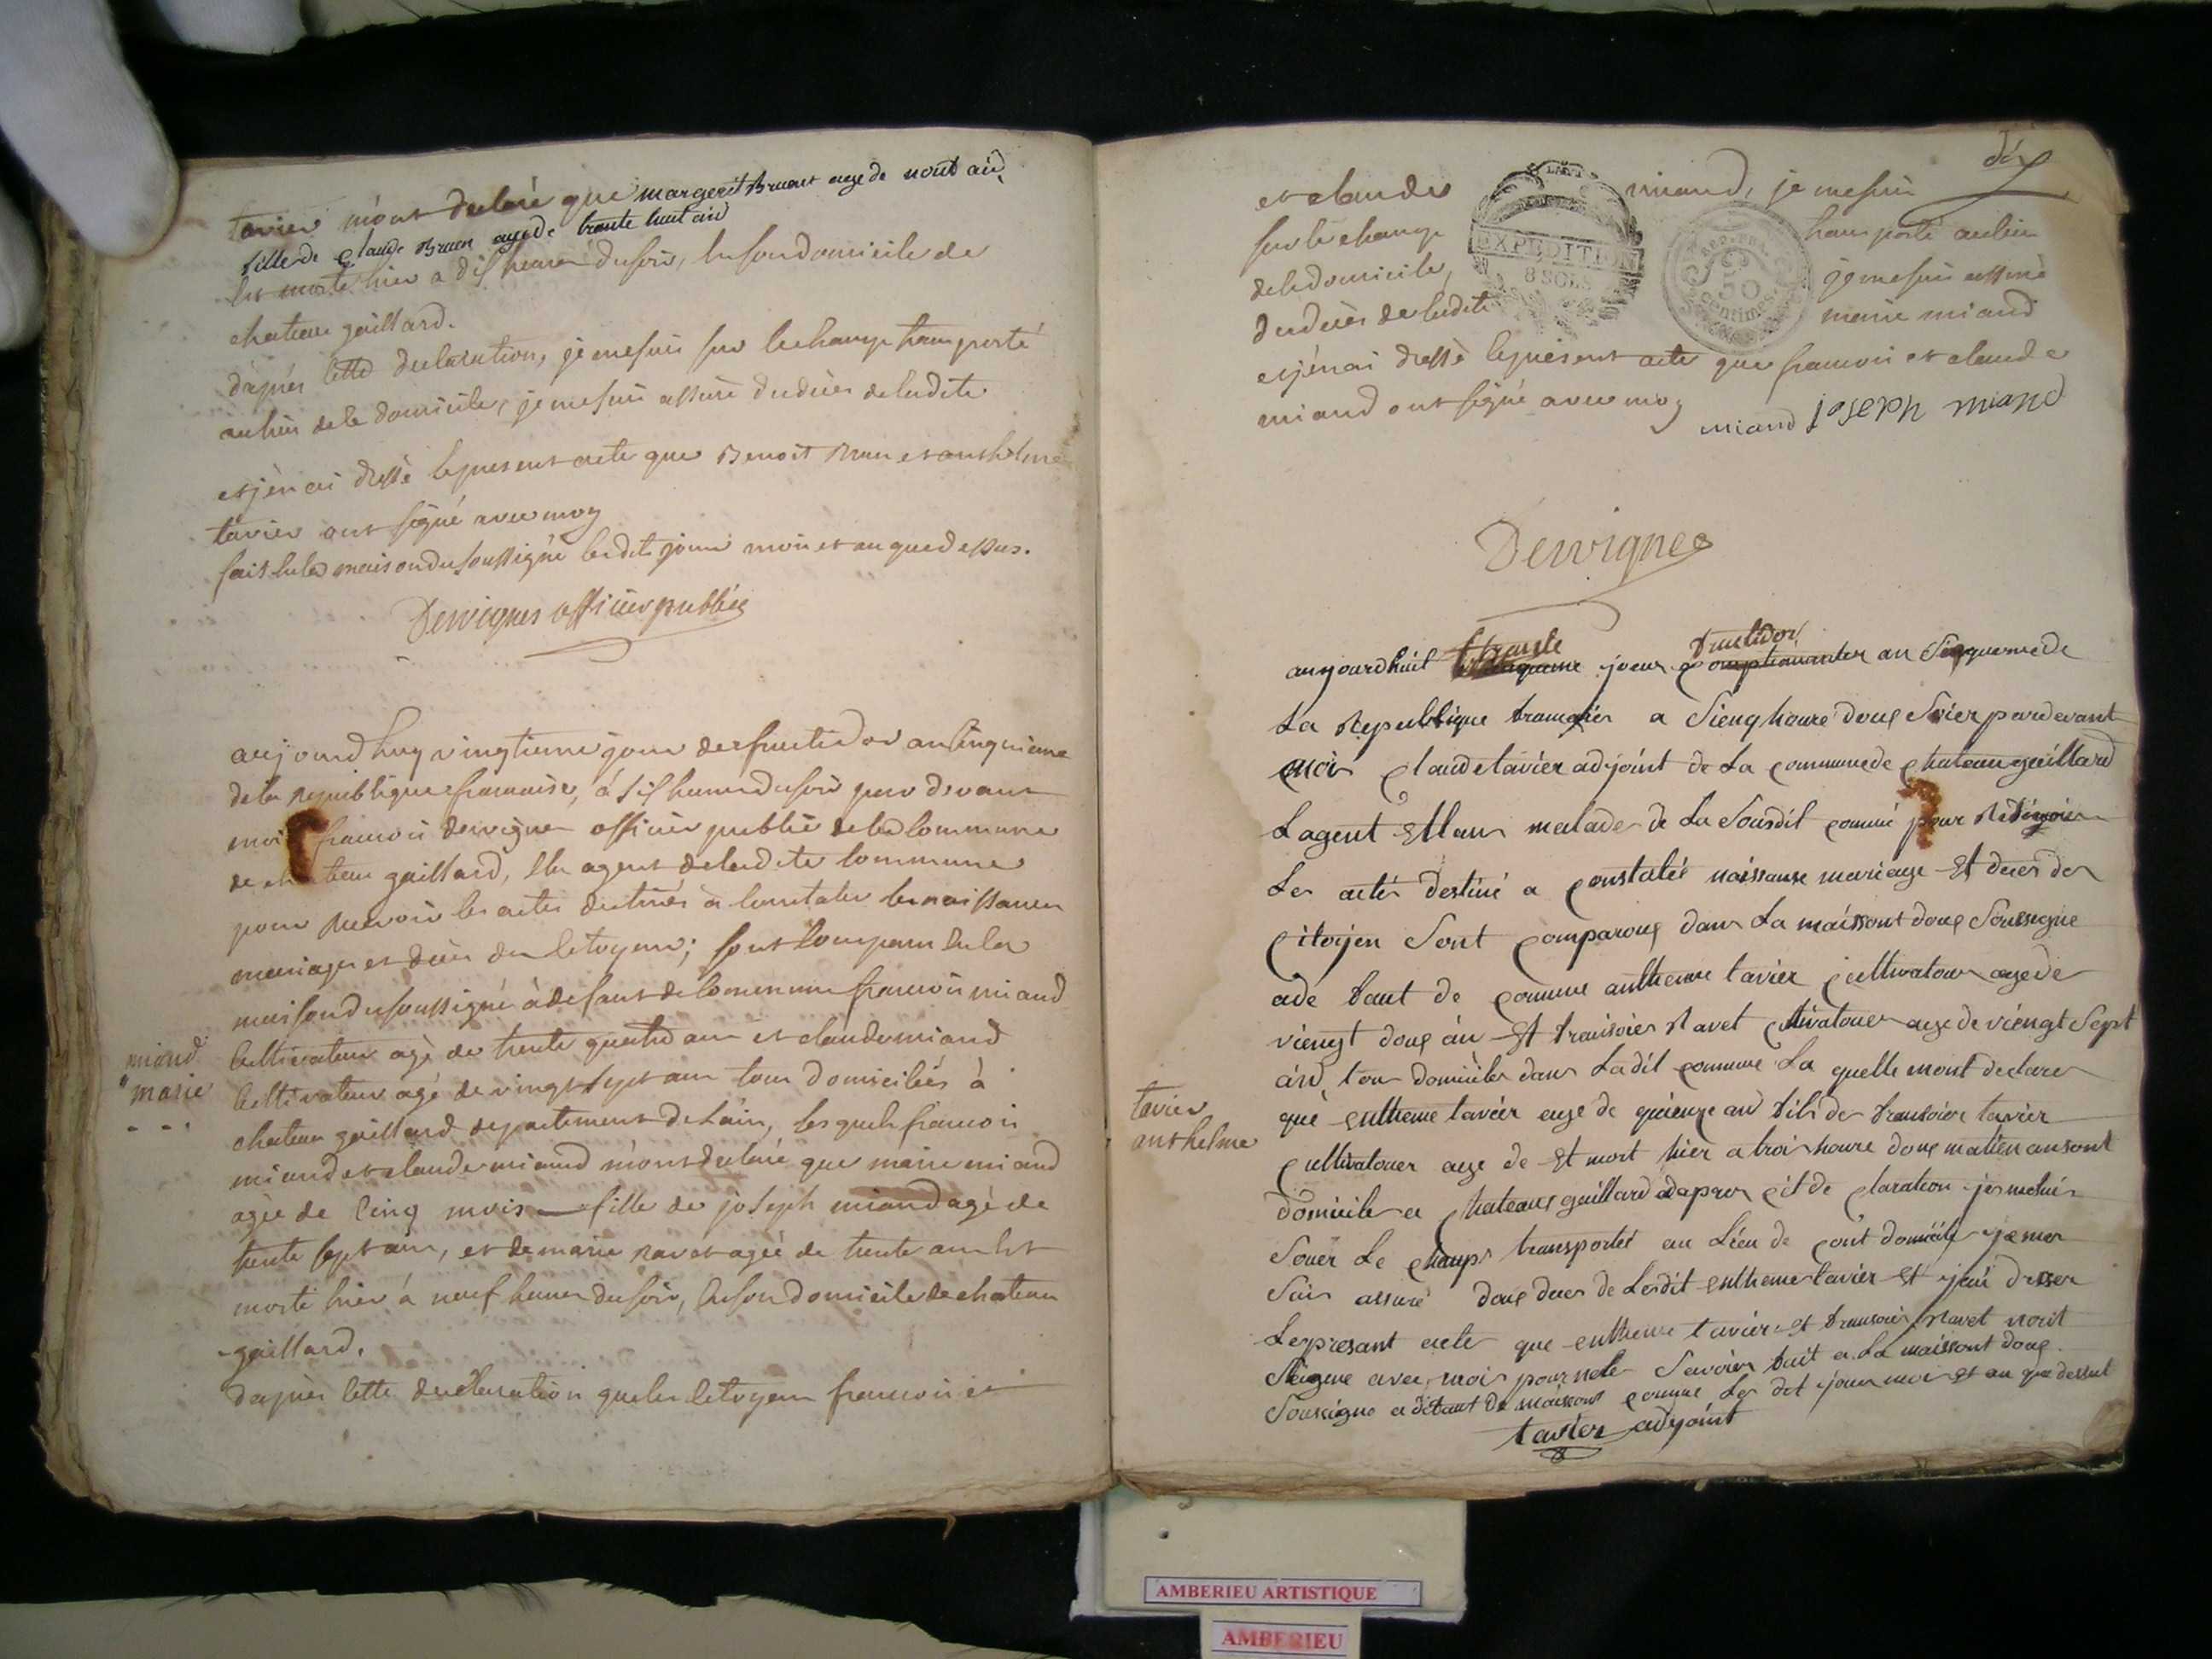 tavier m'ont declaré que margerit Bruent age de nout aid
fille de Claude Bruen age de trante huut aid
est morte hier a dix heures du soir, en son domicile de
chateau gaillard.
d'après cette declaration, je me suis sur le champ transporté
au lieu de ce domicile, je me suis assuré du décès de ladite
et j'en ai dressé le present acte que Benoit Bruen et anthelme
tavier ont signé avec moy
fait en la maison du soussigné lesdits jour mois et an que dessus.
Dervignes officier public
aujourd huy vingtieme jour de fructidor an cinquieme
de la republique francaise, à six heures du soir par devant
moi francois dervignes officier public de la commune
de chateau gaillard, elu agent de ladite commune
pour recevoir les actes destinés à constater les naissances
mariages et décès des citoyens; sont comparu en la
maison du soussigné à defaut de commune francois miand
cultivateur agé de trente quatre ans et claude miand
miand
marie
cultivateur agé de vingt sept ans tous domiciliés à
chateau gaillard departement de l'ain, lesquels francois
miand et claude miand m'ont declaré que marie miand
agée de cinq mois fille de joseph miand agé de
trente sept ans, et de marie ravet agée de trente ans est
morte hier à neuf heures du soir, en son domicile de chateau
gaillard.
d'après cette declaration que les citoyens francois et
dix
et claude miand, je me suis
sur le champ transporté au lieu
de ce domicile, je me suis assuré
du décès de ladite marie miand
EXPEDITION
8 SOLS
REP. FRA.
50
centimes
et j'en ai dressé le present acte que francois et claude
miand ont signé avec moy
miand joseph miand
Dervignes
aujourdhuit trante jour fructidor an Sinquemede
La Republique francoies a Sienq houre doug Soier pardevant
moi Claude tavier adjoint de La Commune de Chateau gaillard
Lagent Estan malade de La Sousdit commu pour Redigoir
Les actes destiné a Constateé naissanse mariage Et deces des
Citoijen Sont Comparoug dans La maissont doug Soussigne
adé faut de Commune anthemme tavier Cultivatour age de
viengt doug an Et fransoies Ravet Cultivatouer age de viengt Sept
and tous domiciles dans Ladit commune La quelle mont declare
tavier
anthelme
que enthemme tavier age de quienze and fils de fransoies tavier
Cultivatouer age de Et mort hier a trois houre doug matien an sont
domicile a Chateau gaillard dapres Cit de Claration je me suis
Souer Le Champs transporteé au Lieu de Cout domicile je me
Suis assuré doug deces de Ledit enthemme tavier Et jeai dresser
Le present acte que enthemme tavier Et fransoies Ravet nont
Siegnue avec moi pour nete Savoier fait a La maissont doug
Soussigne a defaut de maissont comune Les dit jour moi et an que dessut
tavier adjoint
AMBERIEU ARTISTIQUE
AMBERIEU